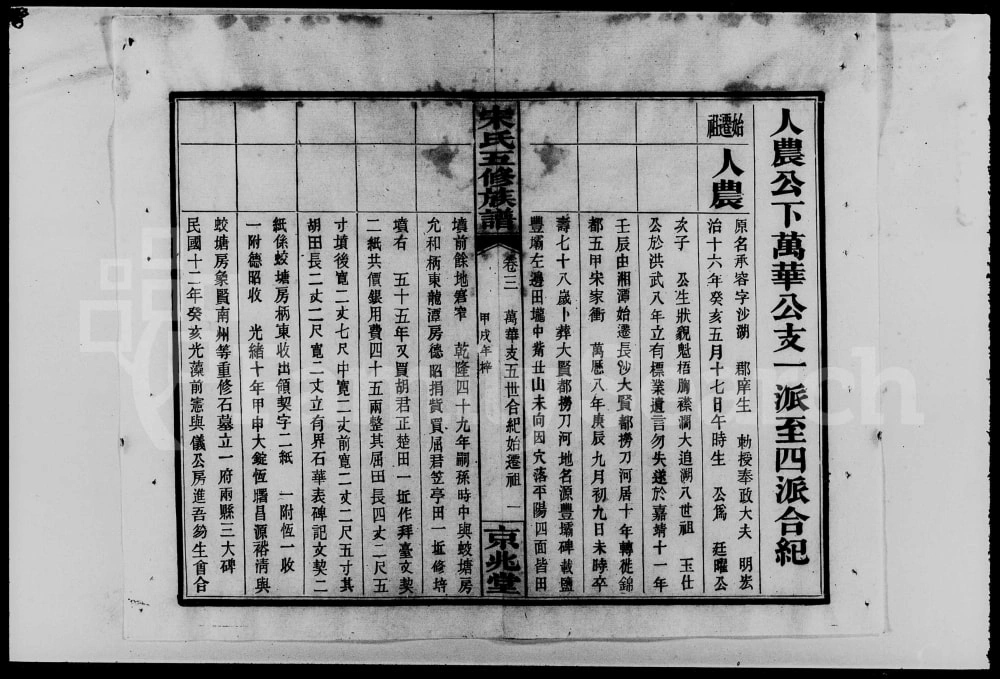 人農公下萬華公支一派至四派合紀
始遷祖
人農
原名承容字沙湖 郡庠生 勅授奉政大夫 明宏
治十六年癸亥五月十七日午時生 公爲 廷曜公
次子 公生狀貌魁梧胸襟濶大追溯八世祖 玉仕
公於洪武八年立有標業遺言勿失遂於嘉靖十一年
壬辰由湘潭始遷長沙大賢都撈刀河居十年轉徙錦
都五甲宋家衝 萬歷八年庚辰九月初九日未時卒
壽七十八歲卜葬大賢都撈刀河地名源豐壩碑載鹽
豐壩左邊田壠中間丑山未向因穴落平陽四面皆田
宋氏五修族譜
卷三 萬華支五世合紀始遷祖 一
甲戌年梓
京兆堂
墳前餘地窘窄 乾隆四十九年嗣孫時中與蛟塘房
允和柄東龍潭房德昭捐貲買屈君笠亭田一坵修培
墳右 五十五年又買胡君正楚田一坵作拜臺文契
二紙共價銀用費四十五兩整其屈田長四丈二尺五
寸墳後寬二丈七尺中寬二丈前寬二丈二尺五寸其
胡田長二丈二尺寬二丈立有界石華表碑記文契二
紙係蛟塘房柄東收出領契字二紙 一附恆一收
一附德昭收 光緒十年甲申大錠恆曙昌源裕清與
蛟塘房象賢南州等重修石墓立一府兩縣三大碑
民國十二年癸亥光藻前憲與儀公房進吾芻生會合